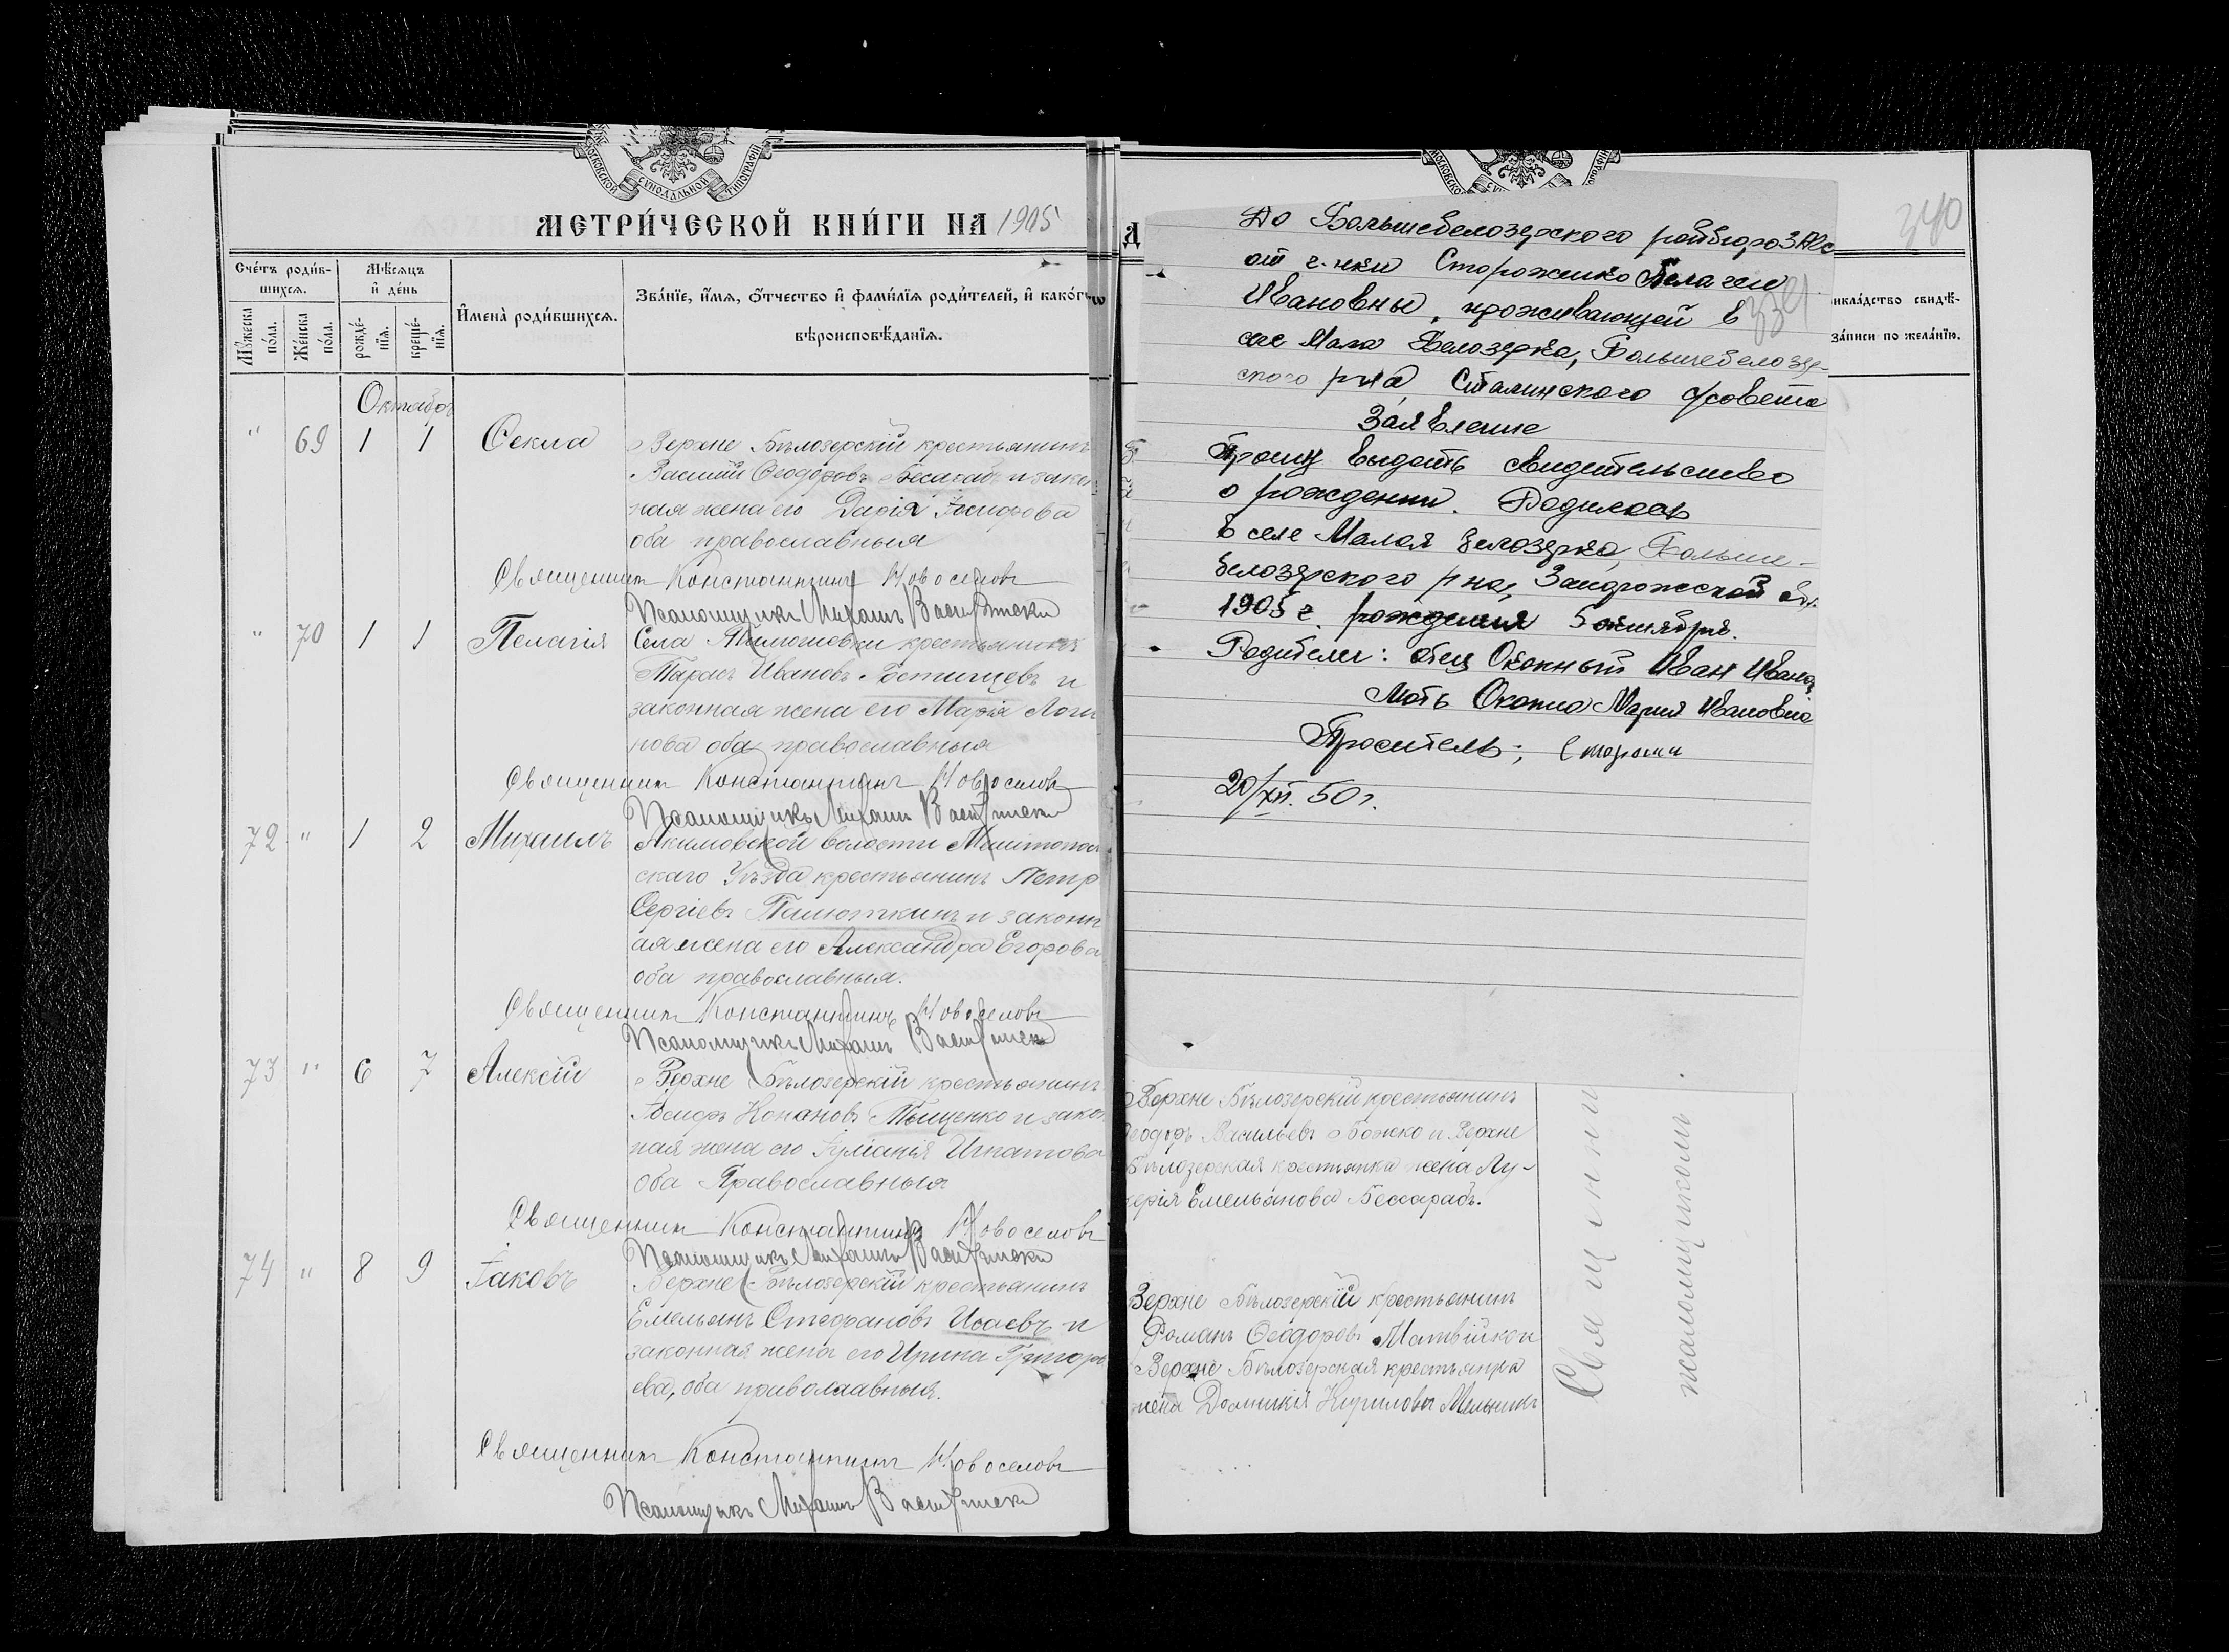 МОСКОВСКОЙ СѴНОДАЛЬНОЙ ТИПОГРАФІИ
МЕТРИ́ЧЕСКОЙ КНИ́ГИ НА 1905
Сче́тъ роди́в-
шихсѧ.
Мѣ́сѧцъ
и҆ де́нь
Мꙋ́жеска по́ла.
Же́нска по́ла.
рожде́-
нїѧ.
креще́-
нїѧ.
И҆мена̀ роди́вшихсѧ.
Зва́нїе, и҆́мѧ, ѻ҆́тчество и҆ фами́лїѧ роди́телей, и҆ како́гѡ
вѣроисповѣ́данїѧ.
Октябрь
" 69 1 1 Ѳекла
Верхне Бѣлозерскій крестьянинъ
Василій Ѳеодоровъ Бесараб и закон
ная жена его Дарія Исидорова
оба православныя
Священникъ Константинъ Новоселовъ
Псаломщикъ Михаилъ
" 70 1 1 Пелагія
Села крестьянинъ
Тарасъ Ивановъ и
законная жена его Марія Логи
нова оба православныя
Священникъ Константинъ Новоселовъ
Псаломщикъ Михаилъ
72 " 1 2 Михаилъ
Акимовской волости Мелитополь
скаго Уѣзда крестьянинъ Петр
Сергіевъ и законн
ая жена его Александра Егорова
оба православныя.
Священникъ Константинъ Новоселовъ
Псаломщикъ Михаилъ
73 " 6 7 Алексій
Верхне Бѣлозерскій крестьянинъ
Кононовъ Тыщенко и закон
ная жена его Іуліанія Игнатова
оба Православныя
Священникъ Константинъ Новоселовъ
Псаломщикъ Михаилъ
74 " 8 9 Іаковъ
Верхне-Бѣлозерскій крестьянинъ
Емельянъ Стефановъ Исаевъ и
законная жена его Ирина Григорь
ева, оба православныя.
Священникъ Константинъ Новоселовъ
Псаломщикъ Михаилъ
340
339
До Большебелозерского райбюро ЗАГС
от г-нки Стороженко Пелагеи
Ивановны, проживающей в
селе Мала Белозерка, Большебелозер-
ского р-на Сталинского с/совета
Заявление
Прошу выдать свидетельство
о рождении. Родилась
в селе Малая Белозерка, Больше-
белозерского р-на, Запорожской обл.
1905 г. рождения 5 октября.
Родители: отец Окопный Иван Иванов
Мать Окопна Мария Ивановна
Проситель:
20/XII. 50 г.
рꙋкоприкла́дство свидѣ́-
за́писи по жела́нїю.
Верхне Бѣлозерскій крестьянинъ
Ѳеодоръ Васильевъ Божко и Верхне
Бѣлозерская крестьянка жена Лу-
керія Емельянова Бессарабъ.
Верхне Бѣлозерскій крестьянинъ
Романъ Ѳеодоровъ Матвійко и
Верхне Бѣлозерская крестьянка
жена Домникія Кирилова Мельникъ
Священник
псаломщиком